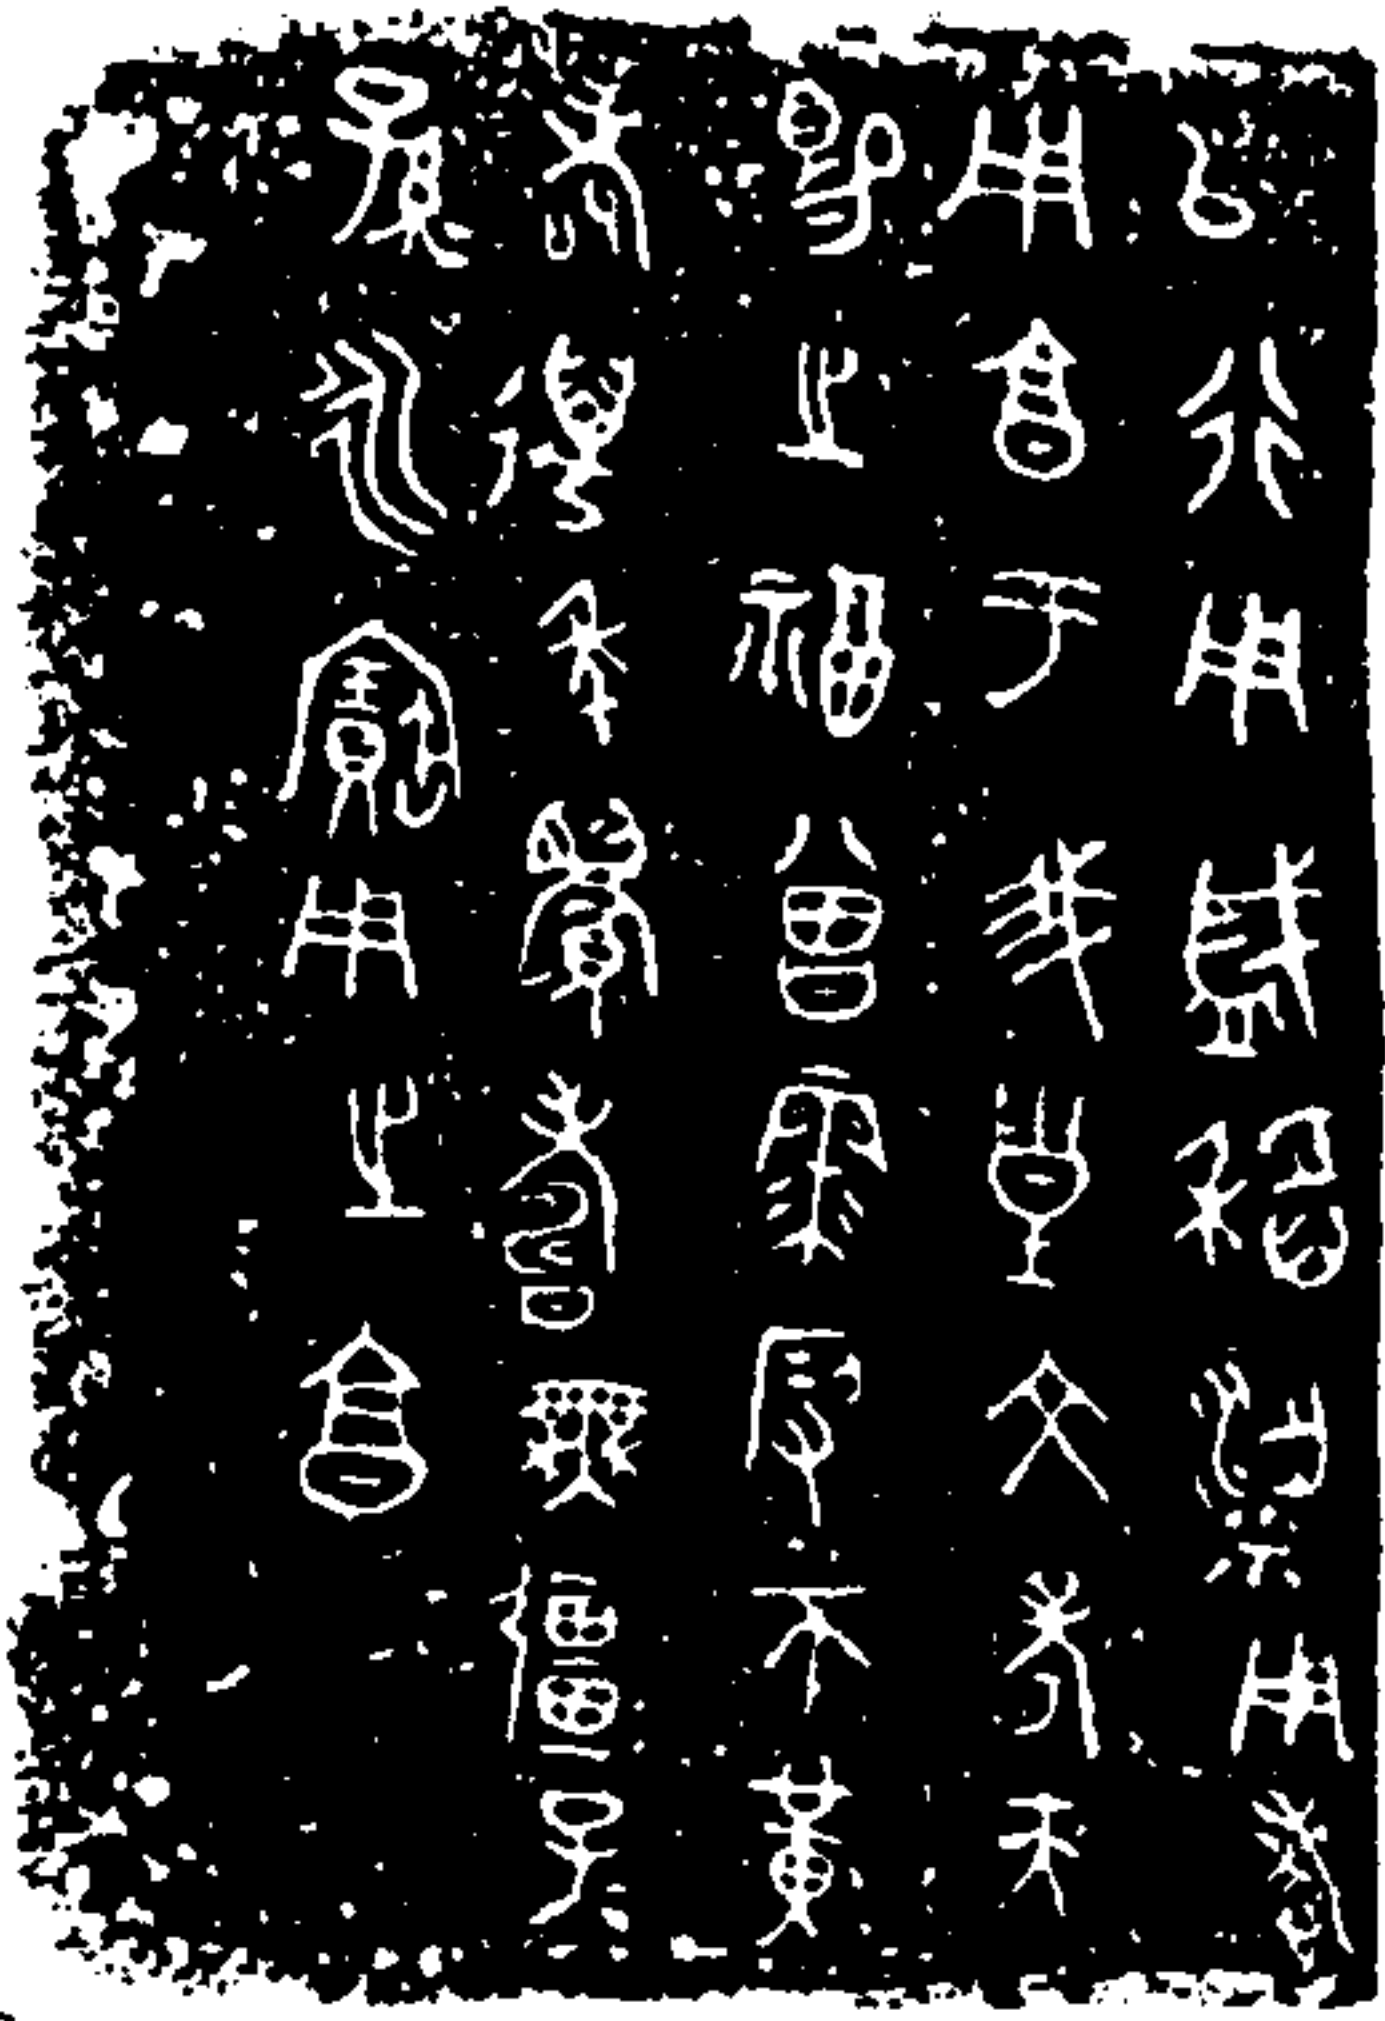 以行用盛稻粱用孝
用享于我皇文考天
賜之福曾霥叚不黃
耇邁年眉壽無疆子=
孫=永寶用之享